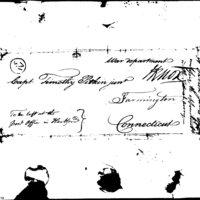 War department
HKnox
Capt Timothy Pitkin junr
Farmington
Connecticut
To be left at the
Post Office in Hartford